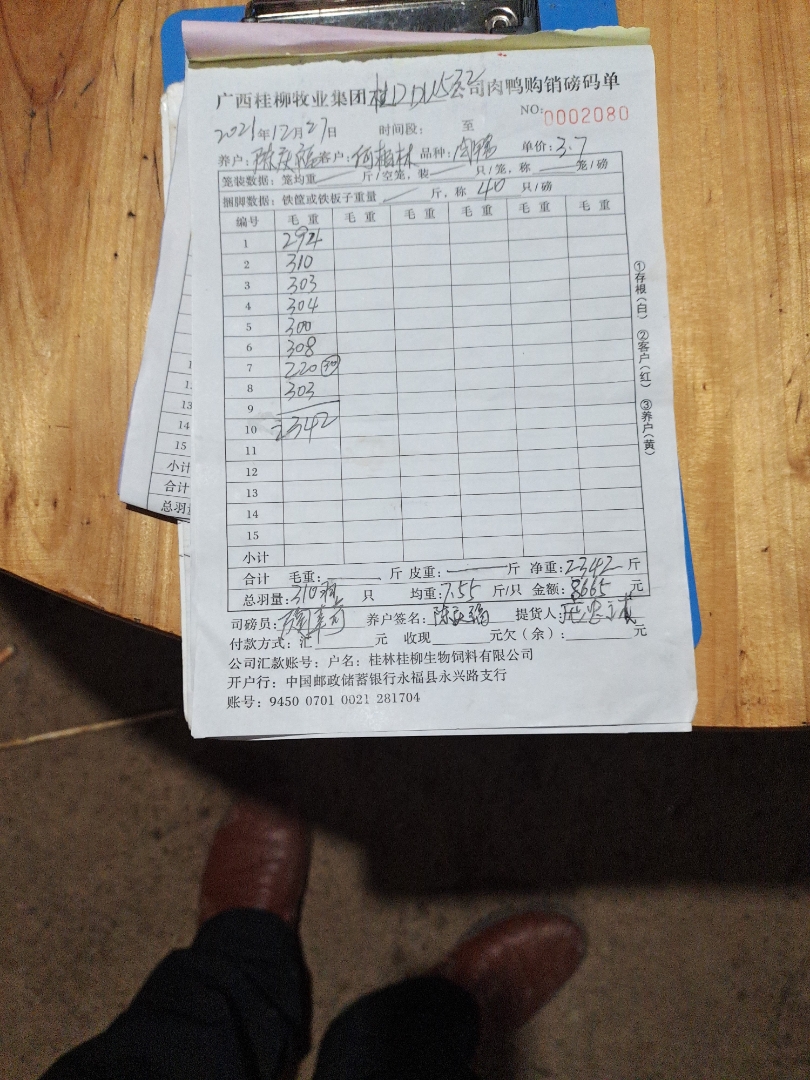 广西桂柳牧业集团桂D DU572公司肉鸭购销磅码单
NO:0002080
2021年12月27日 时间段: 至
养户:陈庆福 客户:何柏林 品种:肉鸭 单价:3.7
笼装数据:笼均重 斤/空笼,装 只/笼,称 笼/磅
捆脚数据:铁筐或铁板子重量 斤,称 40 只/磅
编号 毛重 毛重 毛重 毛重 毛重 毛重
1 294
2 310
3 303
4 304
5 300
6 308
7 220 30
8 303
9
10 2342
11
12
13
14
15
小计
合计 毛重: 斤 皮重: 斤 净重:2342 斤
总羽量:310 只 均重:7.55 斤/只 金额:8665 元
司磅员: 养户签名:陈庆福 提货人:
付款方式:汇 元 收现 元欠(余): 元
公司汇款账号:户名:桂林桂柳生物饲料有限公司
开户行:中国邮政储蓄银行永福县永兴路支行
账号:9450 0701 0021 281704
①存根(白) ②客户(红) ③养户(黄)
13
14
15
小计
合计
总羽